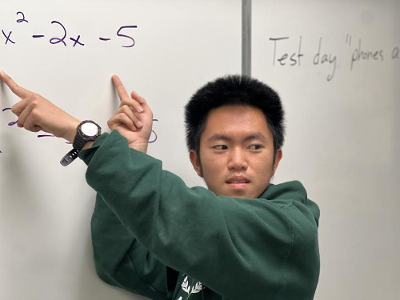 x² -2x -5
Test day "phones a